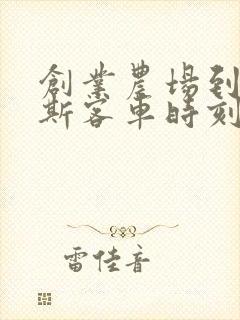 創業農場到
斯客車時刻
雷佳音